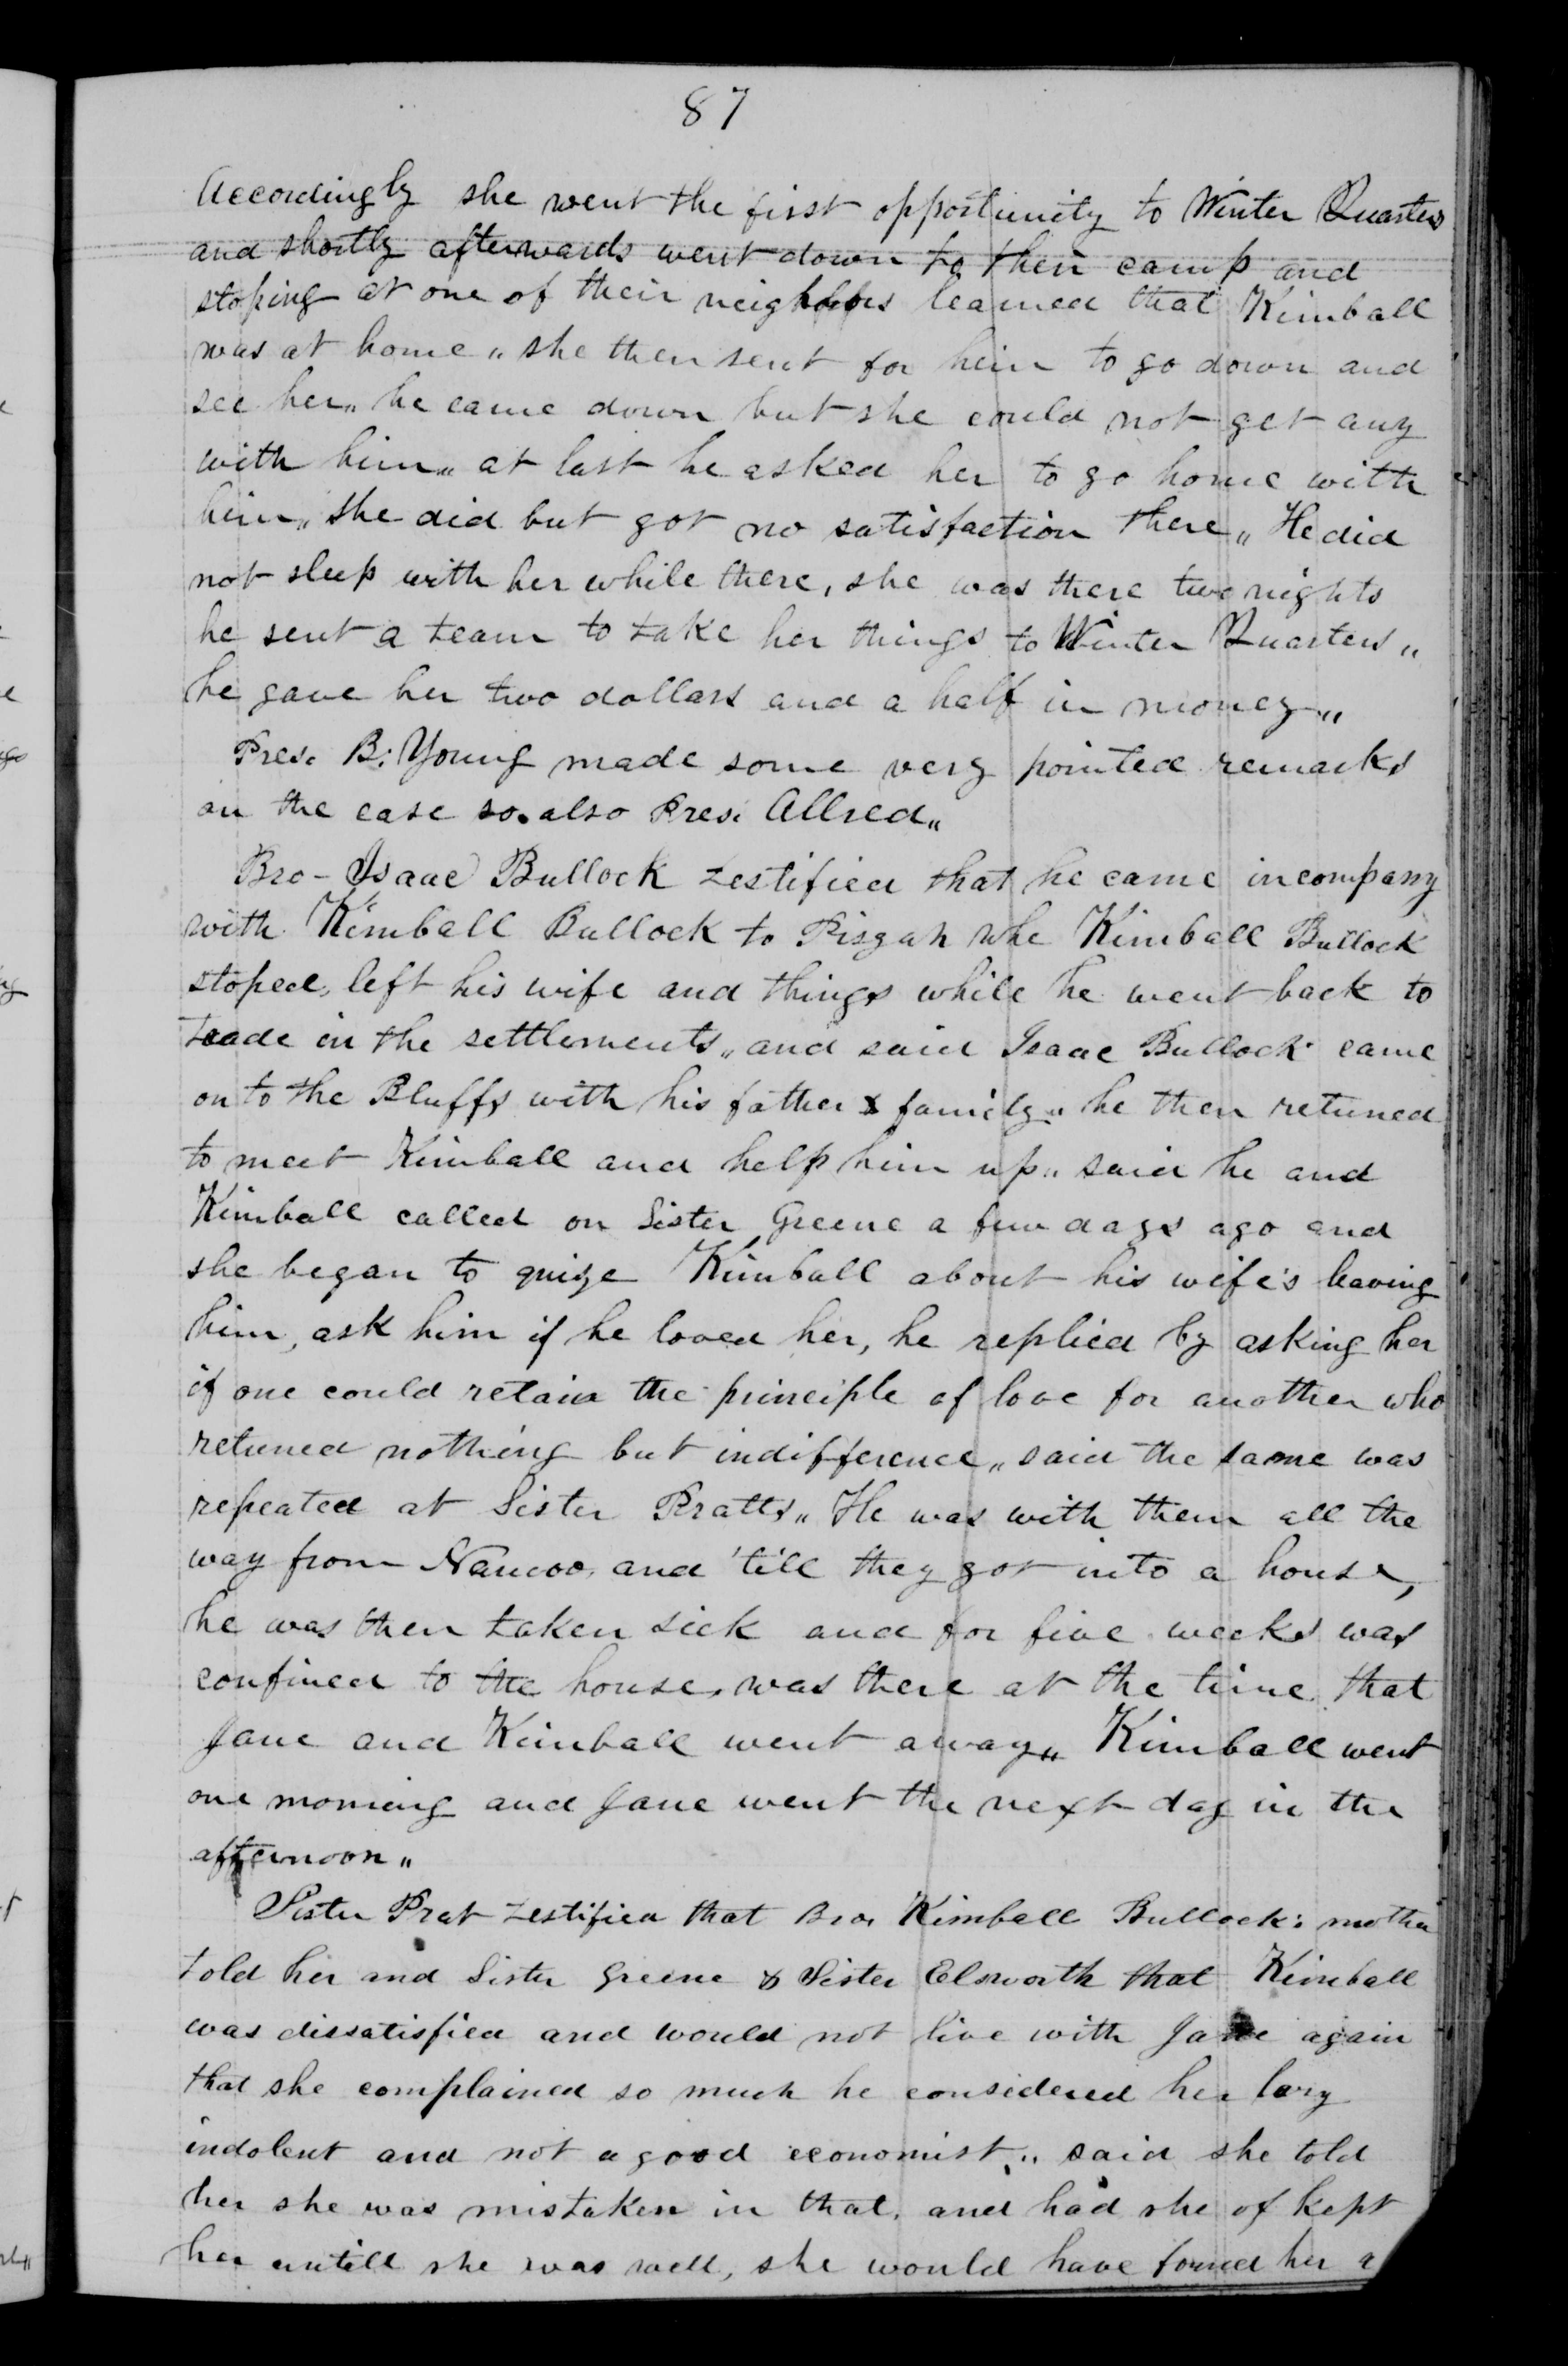 87
Accordingly she went the first opportunity to Winter Quarters
and shortly afterwards went down to their camp and
stoping at one of their neighbors learned that Kimball
was at home „ she then sent for him to go down and
see her„ he came down but she could not get any
with him„ at last he asked her to go home with
him„ she did but got no satisfaction there„ He did
not sleep with her while there, she was there two nights
he sent a team to take her things to Winter Quarters„
he gave her two dollars and a half in money„
Pres. B. Young made some very pointed remarks
on the case so. also Pres. Allred„
Bro- Isaac Bullock testified that he came in company
with Kimball Bullock to Pisgah whe Kimball Bullock
stoped, left his wife and things while he went back to
trade in the settlements„ and said Isaac Bullock came
on to the Bluffs with his father & family„ he then retuned
to meet Kimball and help him up„ said he and
Kimball called on Sister Greene a few days ago and
she began to quize Kimball about his wife's leaving
him, ask him if he loved her, he replied by asking her
if one could retain the principle of love for another who
retuned nothing but indifference„ said the same was
repeated at Sister Pratts„ He was with them all the
way from Nauvoo, and 'till they got into a house,
he was then taken sick and for five weeks was
confined to the house, was there at the time that
Jane and Kimball went away„ Kimball went
one morning and Jane went the next day in the
afternoon„
Sister Prat testified that Bro. Kimball Bullock's mother
told her and Sister Greene & Sister Elsworth that Kimball
was dissatisfied and would not live with Jane again
that she complained so much he considered her lazy
indolent and not a good economist„ said she told
her she was mistaken in that, and had she of kept
her untill she was well, she would have found her a